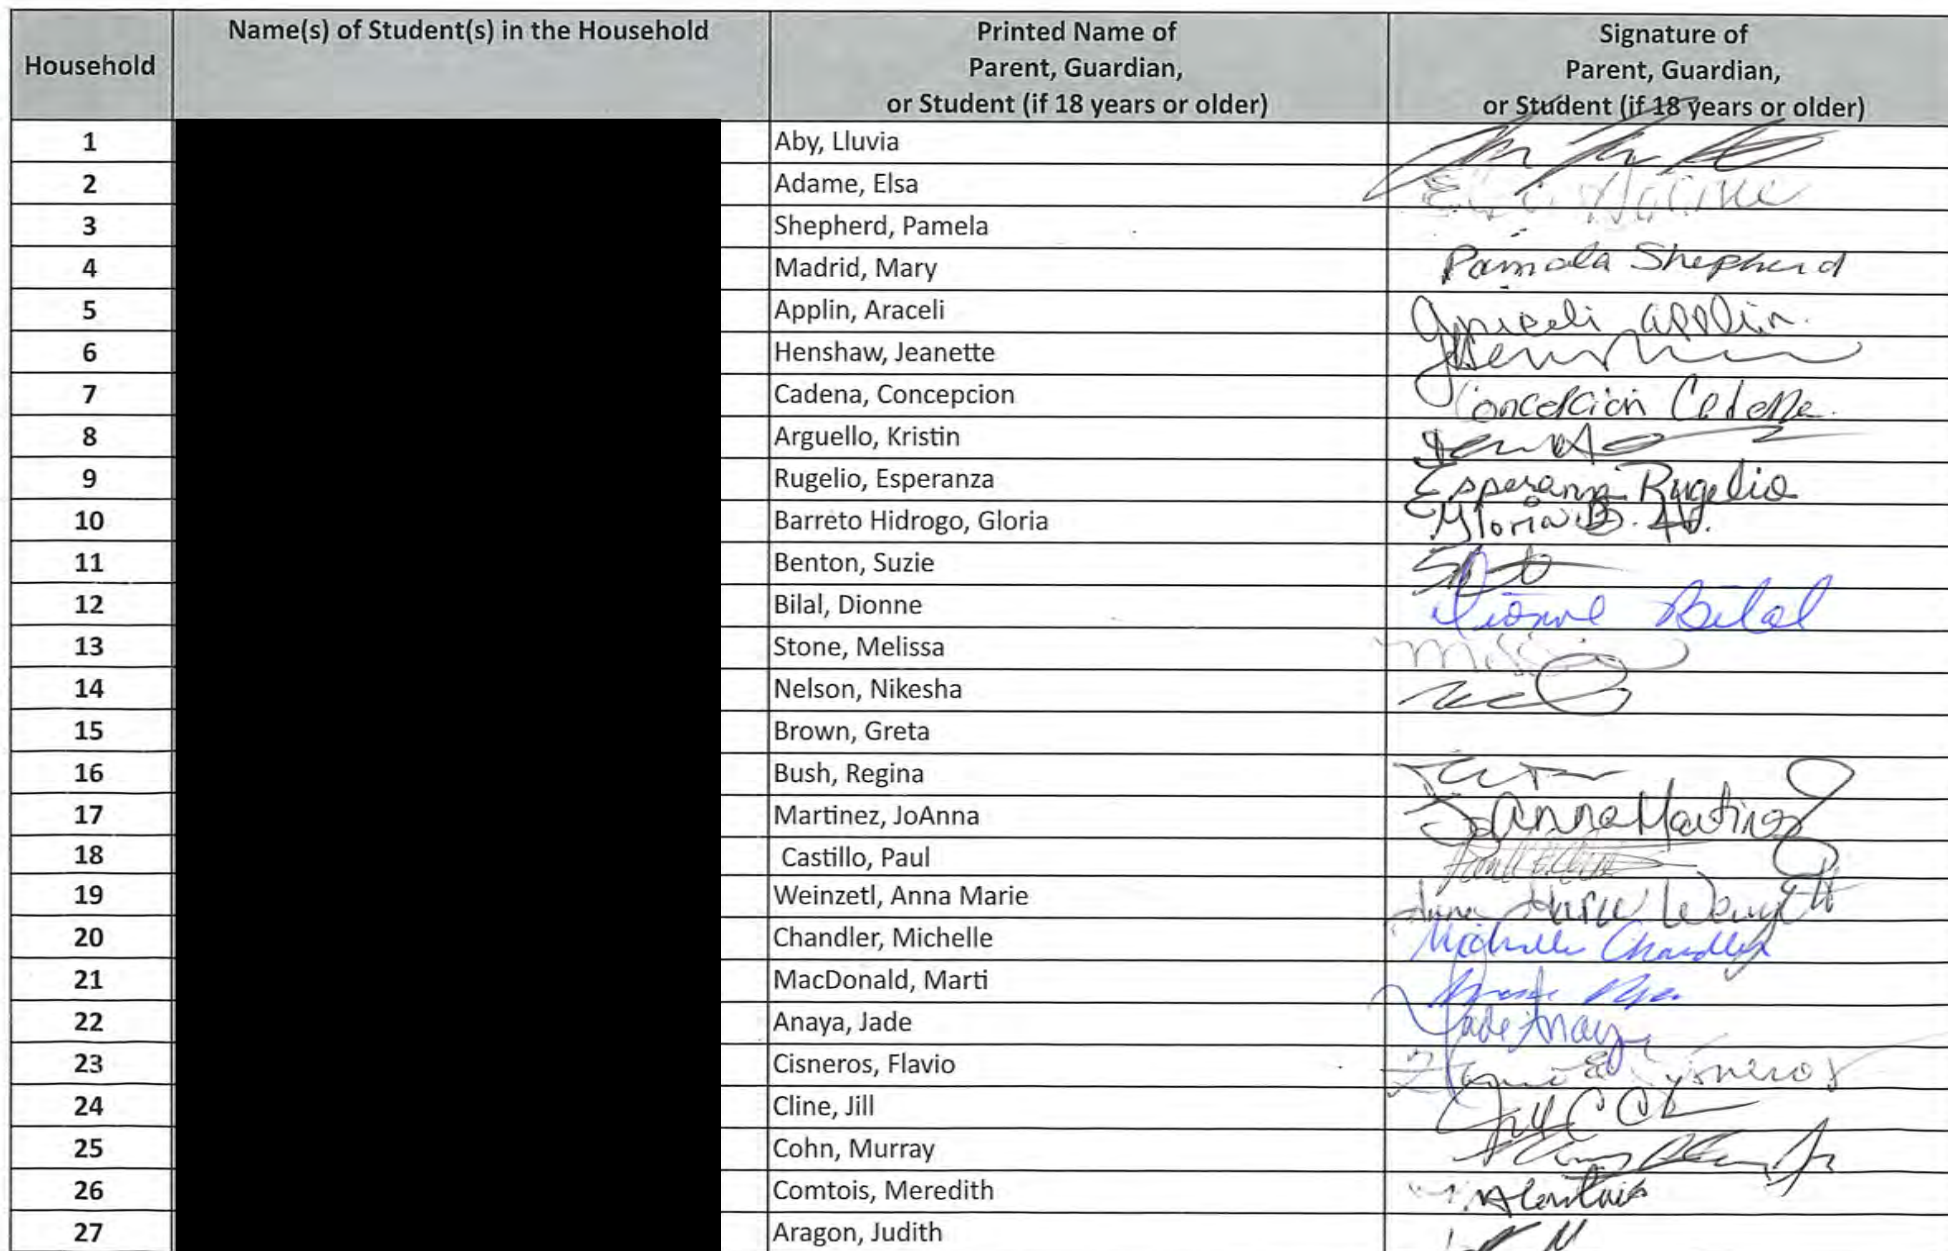 Household
Name(s) of Student(s) in the Household
Printed Name of
Parent, Guardian,
or Student (if 18 years or older)
Signature of
Parent, Guardian,
or Student (if 18 years or older)
1 Aby, Lluvia
2 Adame, Elsa
3 Shepherd, Pamela
4 Madrid, Mary Pamela Shepherd
5 Applin, Araceli Araceli Applin.
6 Henshaw, Jeanette
7 Cadena, Concepcion Concepción Cadena.
8 Arguello, Kristin
9 Rugelio, Esperanza Esperanza Rugelio
10 Barreto Hidrogo, Gloria Gloria B. H.
11 Benton, Suzie
12 Bilal, Dionne Dionne Bilal
13 Stone, Melissa
14 Nelson, Nikesha
15 Brown, Greta
16 Bush, Regina
17 Martinez, JoAnna JoAnna Martinez
18 Castillo, Paul
19 Weinzetl, Anna Marie Anna Marie
20 Chandler, Michelle Michelle Chandler
21 MacDonald, Marti
22 Anaya, Jade Jade Anaya
23 Cisneros, Flavio Cisneros
24 Cline, Jill
25 Cohn, Murray
26 Comtois, Meredith
27 Aragon, Judith